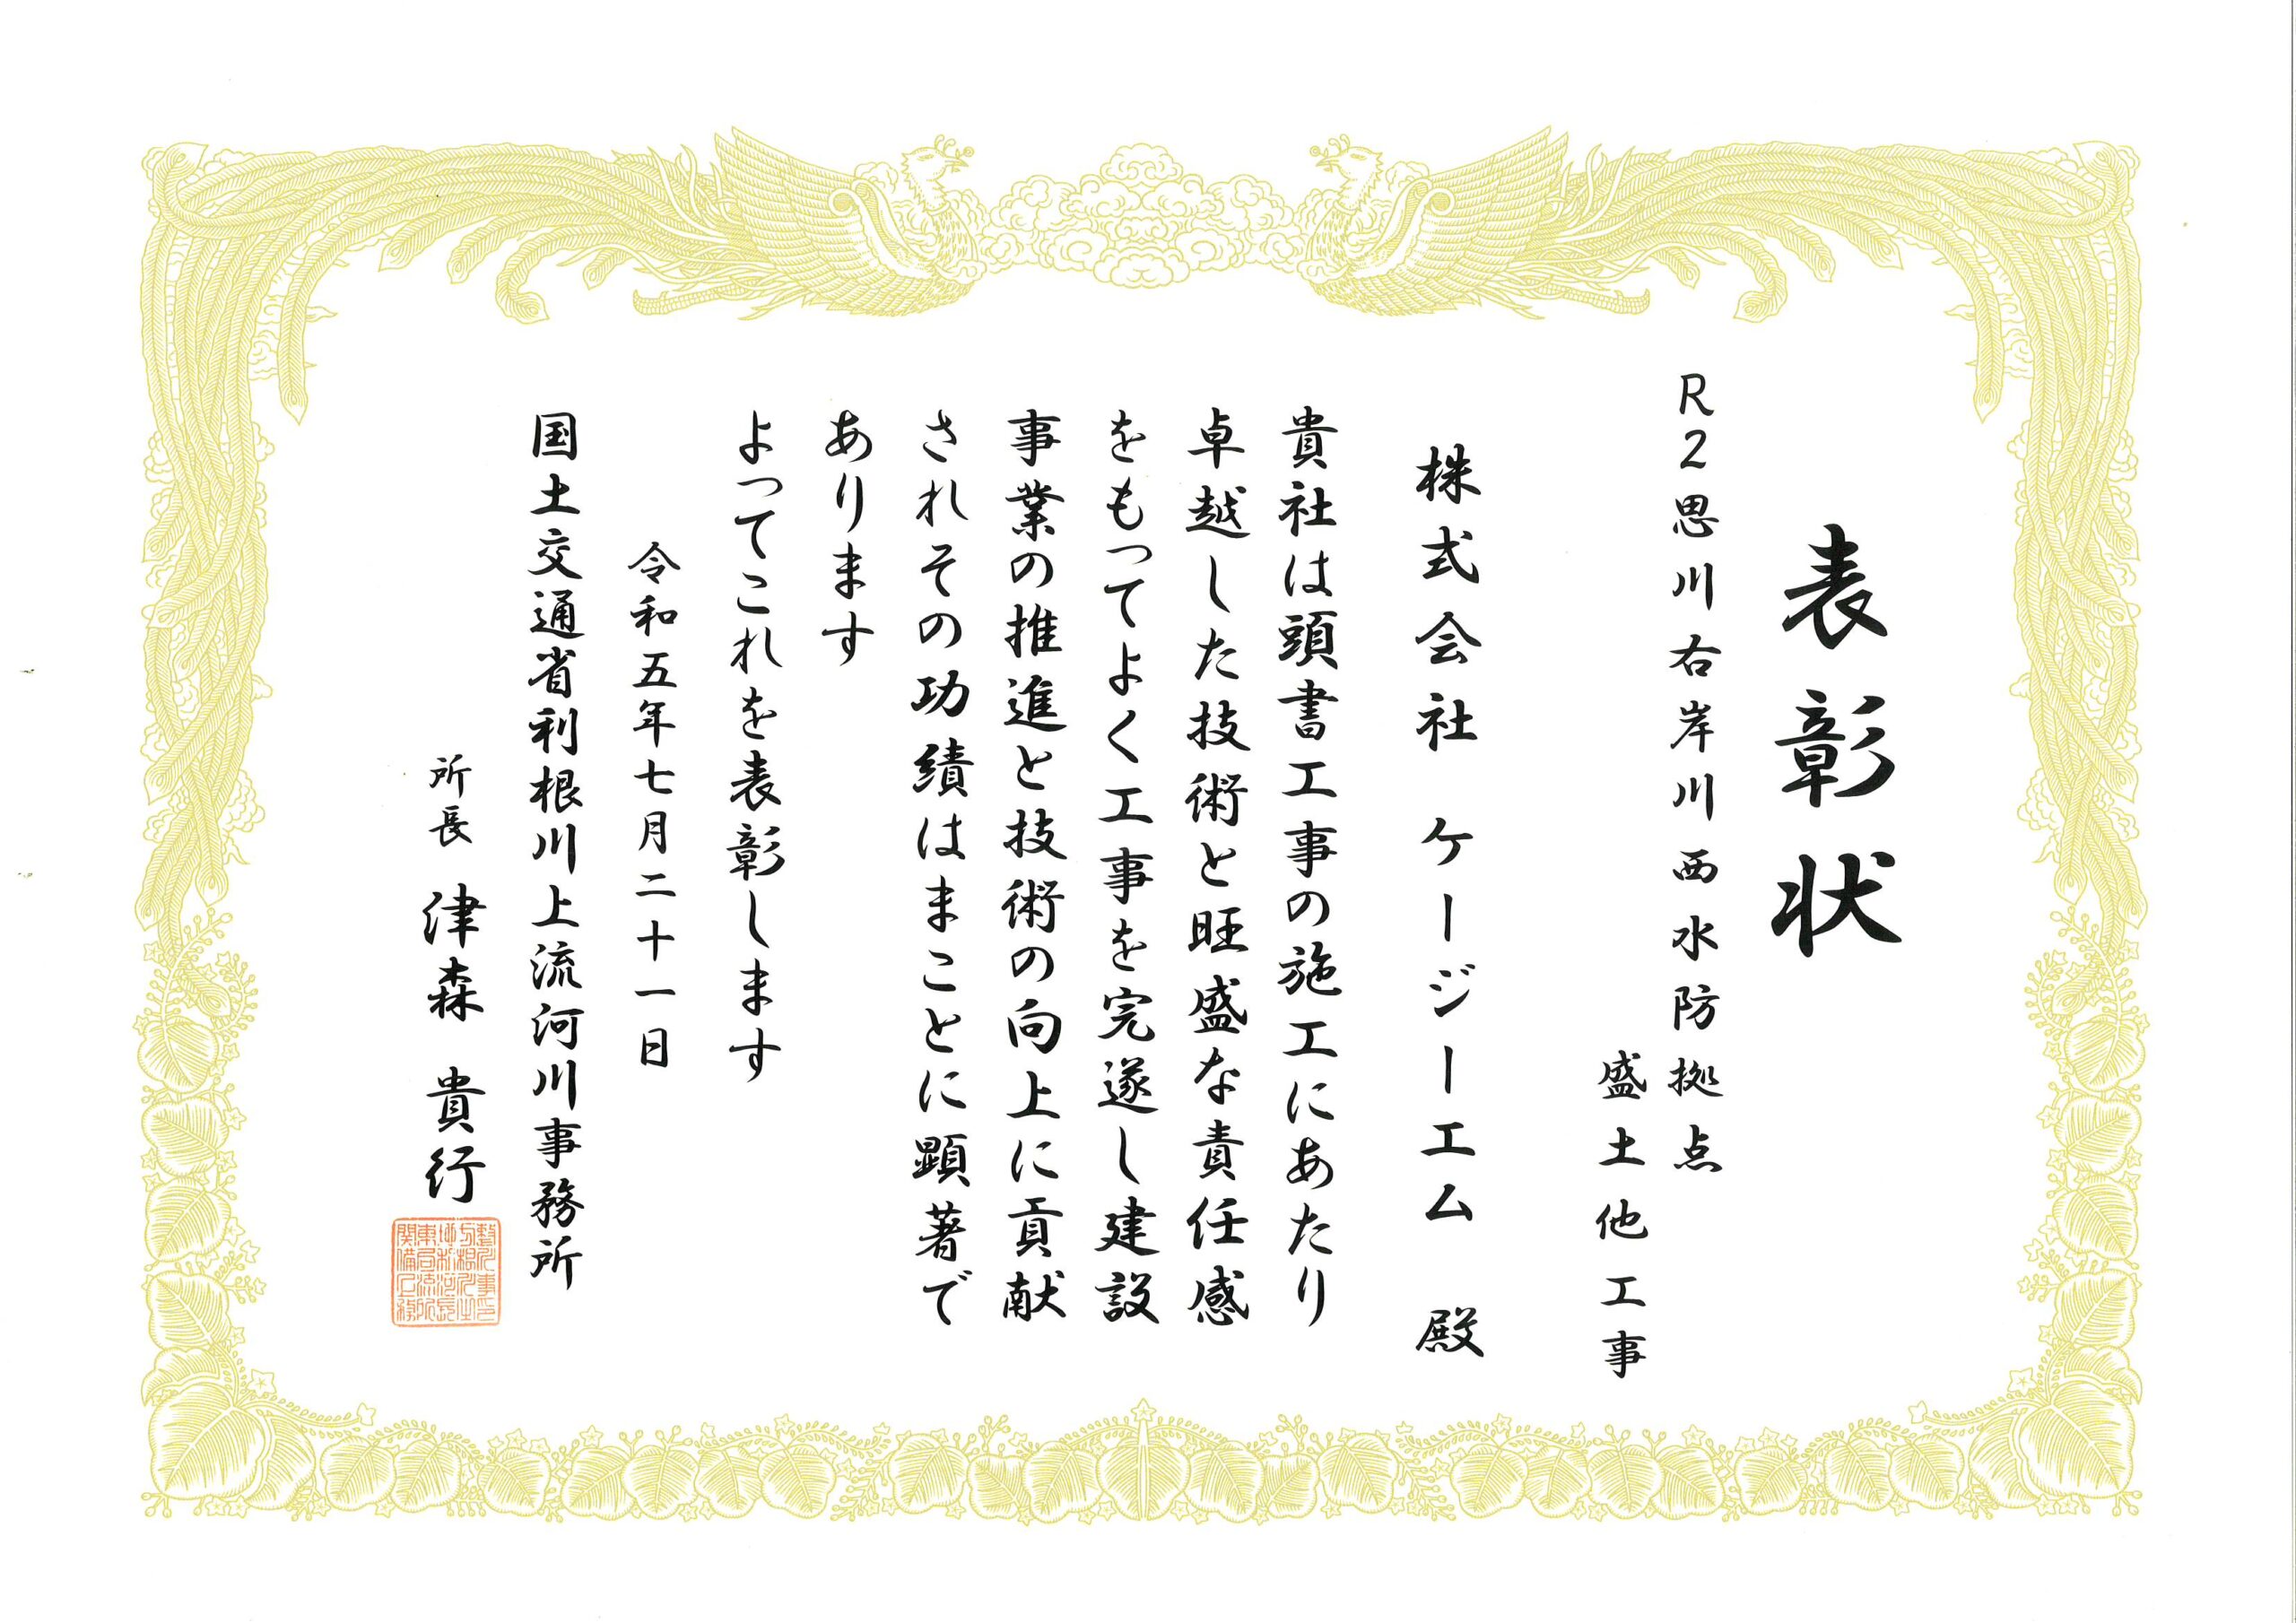 表彰状
R2思川右岸川西水防拠点
盛土他工事
株式会社 ケージーエム 殿
貴社は頭書工事の施工にあたり
卓越した技術と旺盛な責任感
をもってよく工事を完遂し建設
事業の推進と技術の向上に貢献
されその功績はまことに顕著で
あります
よってこれを表彰します
令和五年七月二十一日
国土交通省利根川上流河川事務所
所長 津森 貴行